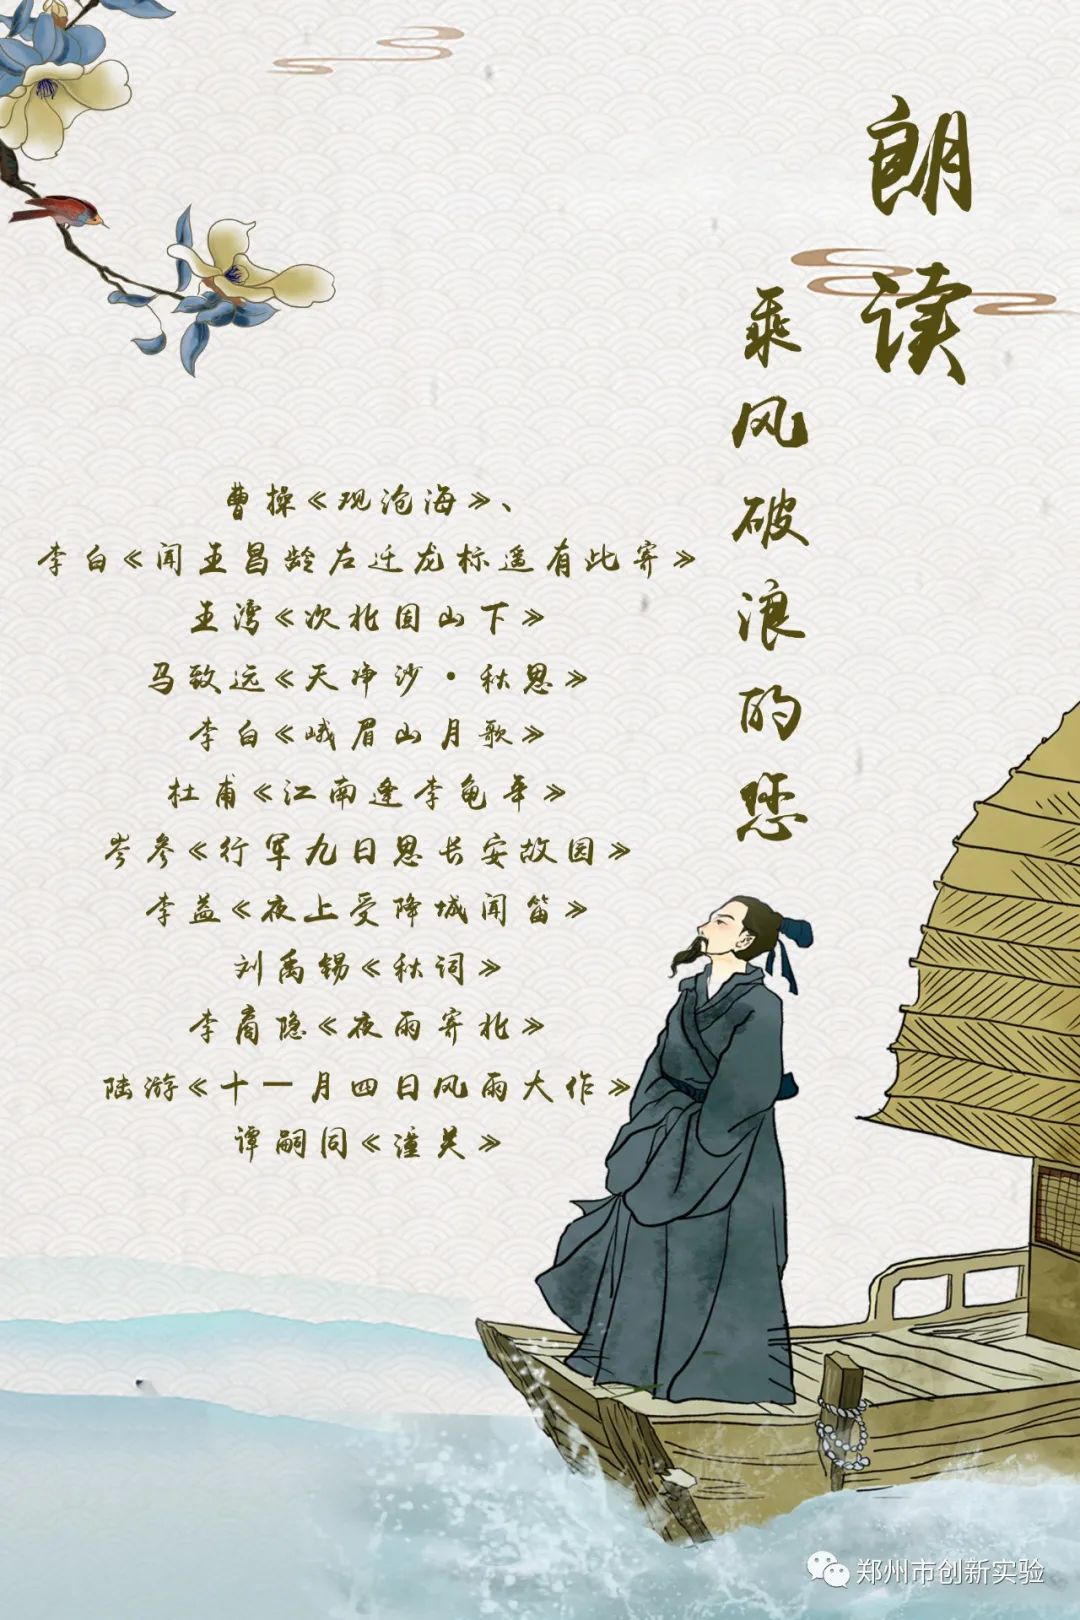 朗读
乘风破浪的您
曹操《观沧海》、
李白《闻王昌龄左迁龙标遥有此寄》
王湾《次北固山下》
马致远《天净沙·秋思》
李白《峨眉山月歌》
杜甫《江南逢李龟年》
岑参《行军九日思长安故园》
李益《夜上受降城闻笛》
刘禹锡《秋词》
李商隐《夜雨寄北》
陆游《十一月四日风雨大作》
谭嗣同《潼关》
郑州市创新实验